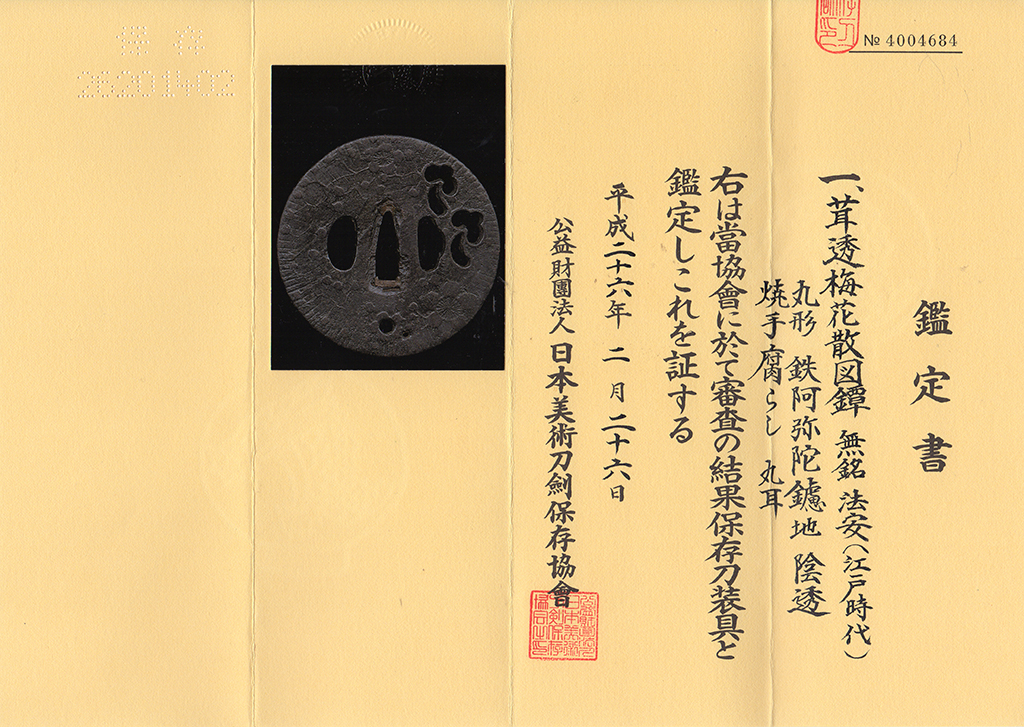 № 4004684
鑑定書
一、茸透梅花散図鐔 無銘 法安(江戸時代)
丸形 鉄阿弥陀鑢地 陰透
焼手腐らし 丸耳
右は當協會に於て審査の結果保存刀装具と
鑑定しこれを証する
平成二十六年 二月二十六日
公益財團法人 日本美術刀劍保存協會
保存
26201402